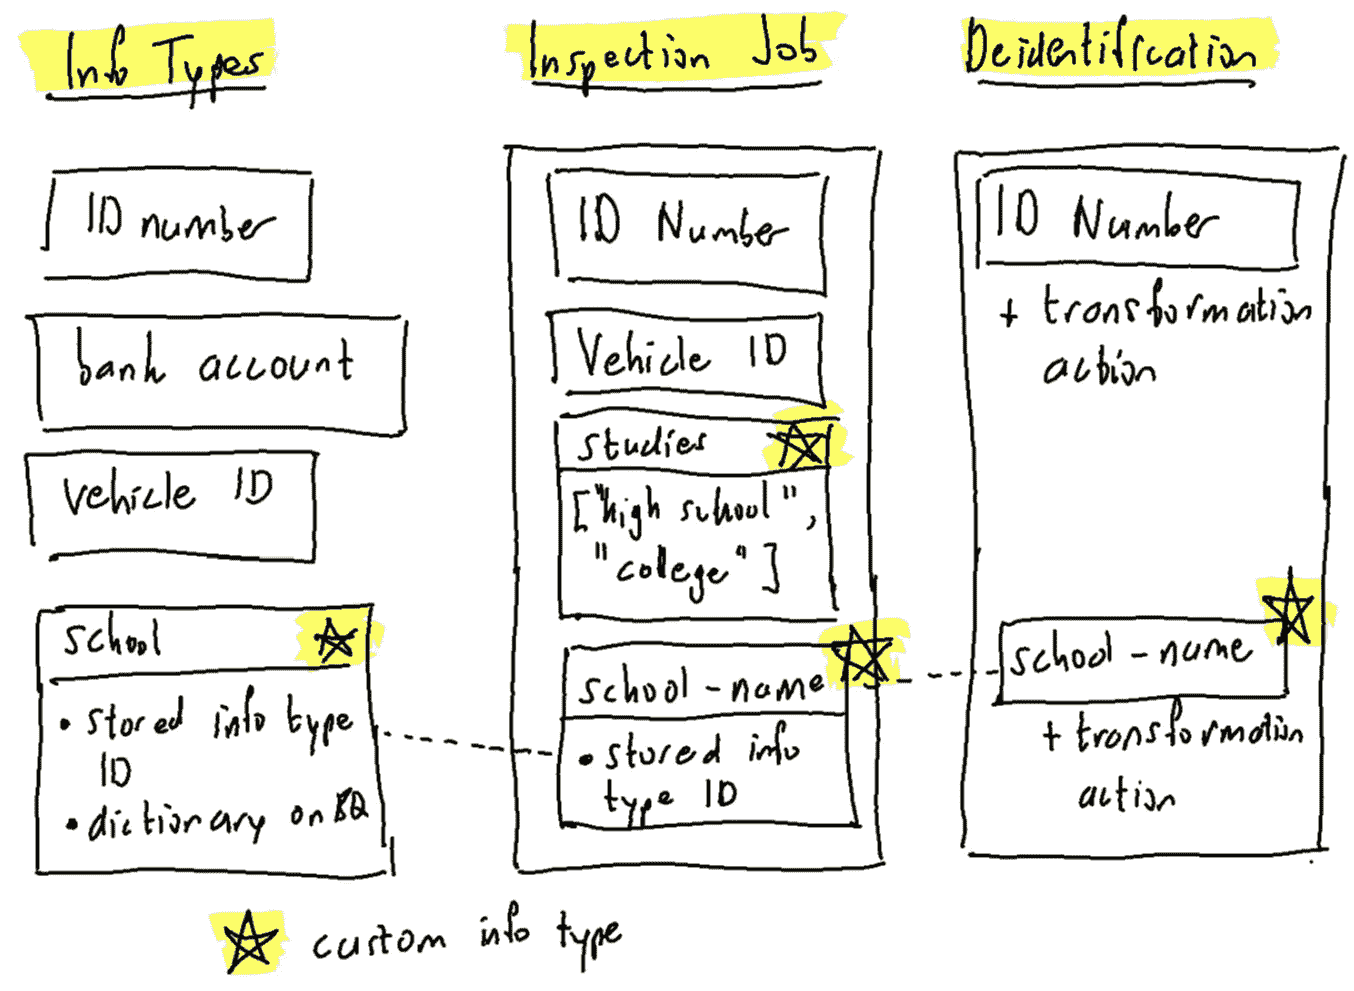 Info Types
ID number
bank account
vehicle ID
school
• stored info type
ID
• dictionary on BQ
Inspection Job
ID Number
Vehicle ID
studies
["high school",
"college"]
school-name
• stored info
type ID
Deidentification
ID Number
+ transformation
action
school-name
+ transformation
action
custom info type